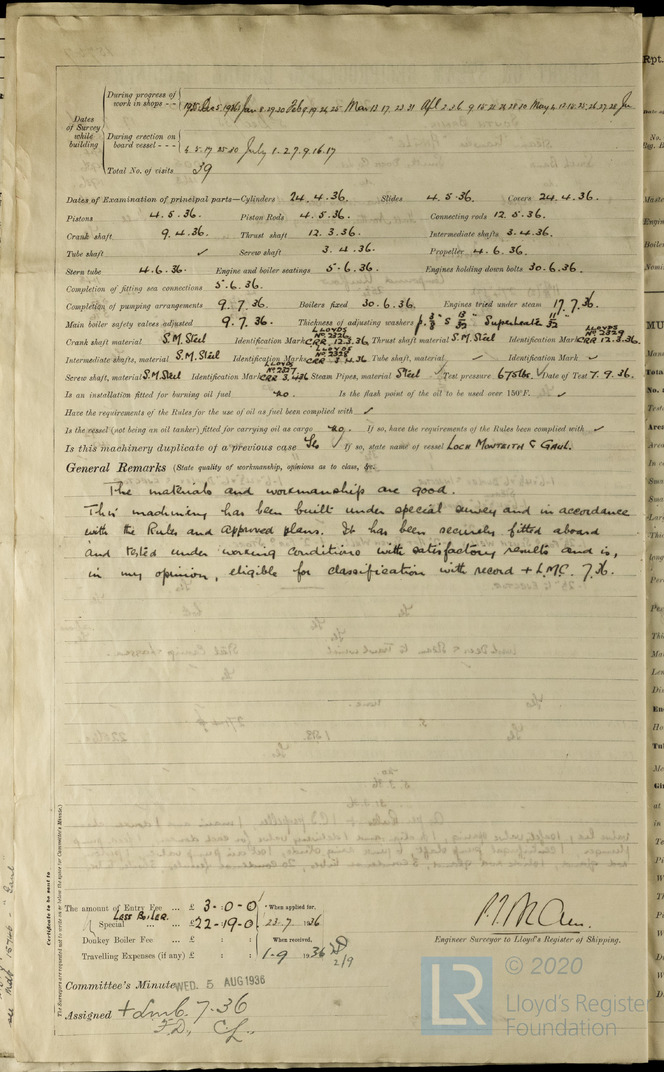 During progress of work in shops - - 1935 Dec 5 1936 Jan 8.29.30 Feb 19.24.25 Mar 13.17.23.31 Apl 2.3.6.9.15.21.24.28.30 May 4.12.15.25.26.27.28 Jun
Dates of Survey while building
During erection on board vessel - - - 4.5.17.25.30 July 1.2.7.9.16.17
Total No. of visits 39
Dates of Examination of principal parts—Cylinders 24.4.36. Slides 4.5.36. Covers 24.4.36.
Pistons 4.5.36. Piston Rods 4.5.36. Connecting rods 12.5.36.
Crank shaft 9.4.36. Thrust shaft 12.3.36. Intermediate shafts 3.4.36.
Tube shaft ✓ Screw shaft 3.4.36. Propeller 4.6.36.
Stern tube 4.6.36. Engine and boiler seatings 5.6.36. Engines holding down bolts 30.6.36.
Completion of fitting sea connections 5.6.36.
Completion of pumping arrangements 9.7.36. Boilers fixed 30.6.36. Engines tried under steam 17.7.36.
Main boiler safety valves adjusted 9.7.36. Thickness of adjusting washers p. 3/8 s 13/32" Superheater 11/32"
Crank shaft material S.M. Steel Identification Mark LLOYDS CRR 12.3.36 Thrust shaft material S.M. Steel Identification Mark LLOYDS No 2329 CRR 12.3.36.
Intermediate shafts, material S.M. Steel Identification Marks LLOYDS No 2328 CRR 3.4.36 Tube shaft, material ✓ Identification Mark ✓
Screw shaft, material S.M. Steel Identification Mark LLOYDS No 2327 CRR 3.4.36 Steam Pipes, material Steel ✓ Test pressure 675 lbs. ✓ Date of Test 7.9.36.
Is an installation fitted for burning oil fuel no. Is the flash point of the oil to be used over 150°F. ✓
Have the requirements of the Rules for the use of oil as fuel been complied with ✓
Is the vessel (not being an oil tanker) fitted for carrying oil as cargo no. If so, have the requirements of the Rules been complied with ✓
Is this machinery duplicate of a previous case Yes ✓ If so, state name of vessel Loch Monteith & Gaul.
General Remarks (State quality of workmanship, opinions as to class, &c.
The materials and workmanship are good.
This machinery has been built under special survey and in accordance
with the Rules and approved plans. It has been securely fitted aboard
and tested under working conditions with satisfactory results and is,
in my opinion, eligible for classification with record + L.M.C. 7.36.
Certificate to be sent to
(The Surveyors are requested not to write on or below the space for Committee's Minute.)
The amount of Entry Fee ... £ 3-0-0 When applied for,
Less Boiler.
Special ... £ 22-19-0 23-7 1936
Donkey Boiler Fee ... £ : : When received,
Travelling Expenses (if any) £ : : 1-9 1936 2/9
Engineer Surveyor to Lloyd's Register of Shipping.
Committee's Minute WED. 5 AUG 1936
Assigned + LMC. 7.36
F.D., C.L.
© 2020
LR
Lloyd's Register
Foundation